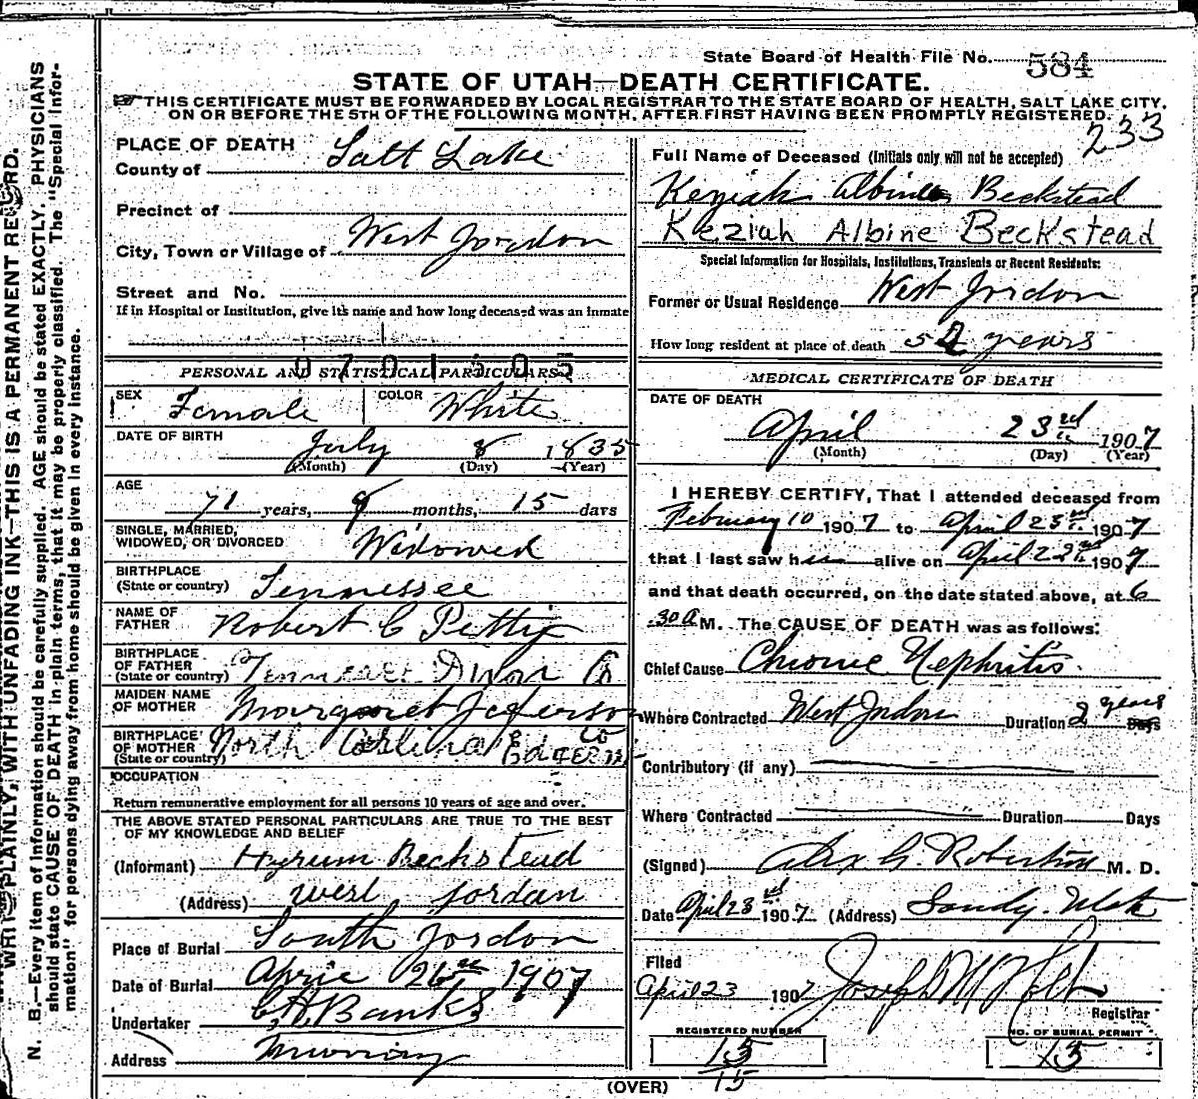 State Board of Health File No. 584
STATE OF UTAH—DEATH CERTIFICATE.
THIS CERTIFICATE MUST BE FORWARDED BY LOCAL REGISTRAR TO THE STATE BOARD OF HEALTH, SALT LAKE CITY,
ON OR BEFORE THE 5TH OF THE FOLLOWING MONTH, AFTER FIRST HAVING BEEN PROMPTLY REGISTERED.
233
PLACE OF DEATH
County of Salt Lake
Precinct of
City, Town or Village of West Jordon
Street and No.
If in Hospital or Institution, give it's name and how long deceased was an inmate
0701505
PERSONAL AND STATISTICAL PARTICULARS
SEX Female COLOR White
DATE OF BIRTH July 8 1835
(Month) (Day) (Year)
AGE
71 years, 9 months, 15 days
SINGLE, MARRIED,
WIDOWED, OR DIVORCED Widowed
BIRTHPLACE
(State or country) Tennessee
NAME OF
FATHER Robert C Pettij
BIRTHPLACE
OF FATHER
(State or country) Tennessee Dixon Co
MAIDEN NAME
OF MOTHER Margaret Jeferson
BIRTHPLACE
OF MOTHER
(State or country) North Carlina Co
OCCUPATION
Return remunerative employment for all persons 10 years of age and over.
THE ABOVE STATED PERSONAL PARTICULARS ARE TRUE TO THE BEST
OF MY KNOWLEDGE AND BELIEF
(Informant) Hyrum Beckstead
(Address) west jordan
Place of Burial South Jordon
Date of Burial April 26th 1907
Undertaker Banks
Address Murray
Full Name of Deceased (Initials only will not be accepted)
Keziah Albine Beckstead
Keziah Albine Beckstead
Special Information for Hospitals, Institutions, Transients or Recent Residents:
Former or Usual Residence West Jordon
How long resident at place of death 52 years
MEDICAL CERTIFICATE OF DEATH
DATE OF DEATH
April 23rd 1907
(Month) (Day) (Year)
I HEREBY CERTIFY, That I attended deceased from
February 10 1907 to April 23rd 1907
that I last saw her alive on April 22nd 1907
and that death occurred, on the date stated above, at 6
.30 a M. The CAUSE OF DEATH was as follows:
Chief Cause Chronic Nephritis
Where Contracted West Jordon Duration 2 years Days
Contributory (if any)
Where Contracted Duration Days
(Signed) Alex G. Robertson M. D.
Date April 23rd 1907 (Address) Sandy. Utah
Filed
April 23 1907 Joseph M Holt
Registrar
REGISTERED NUMBER NO. OF BURIAL PERMIT
15 15
15
(OVER)
WRITE PLAINLY, WITH UNFADING INK—THIS IS A PERMANENT RECORD.
N. B.—Every item of information should be carefully supplied. AGE should be stated EXACTLY. PHYSICIANS
should state CAUSE OF DEATH in plain terms, that it may be properly classified. The "Special Infor-
mation" for persons dying away from home should be given in every instance.